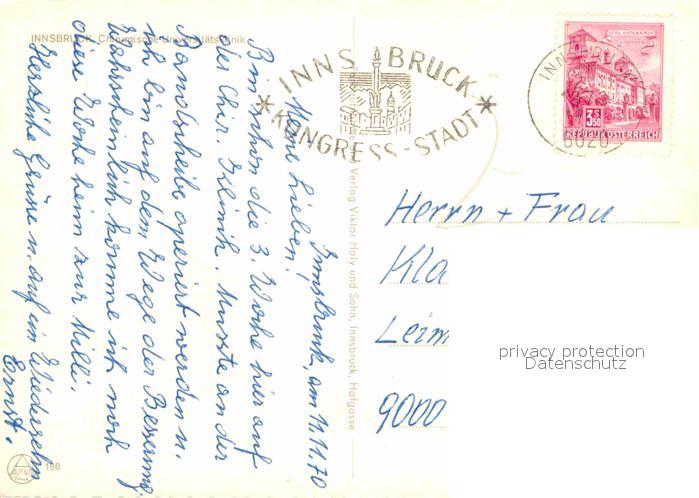 INNSBRUCK, Chirurgische Universitätsklinik
INNSBRUCK
KONGRESS-STADT
INNSBRUCK
6020
SCHL. ESTERHAZY
EISENSTADT
3.50
REPUBLIK ÖSTERREICH
Innsbruck, am 11.11.70
Meine Lieben!
Bin schon die 3. Woche hier auf
der Chir. Klinik. Musste an der
Bandscheibe operiert werden u.
ich bin auf dem Wege der Besserung.
Wahrscheinlich komme ich noch
diese Woche heim zur Milli.
Herzliche Grüsse u. auf ein Wiedersehn
Ernst.
Verlag Viktor Holy und Sohn, Innsbruck, Hofgasse
Herrn + Frau
Kla
Leim
9000
privacy protection
Datenschutz
190